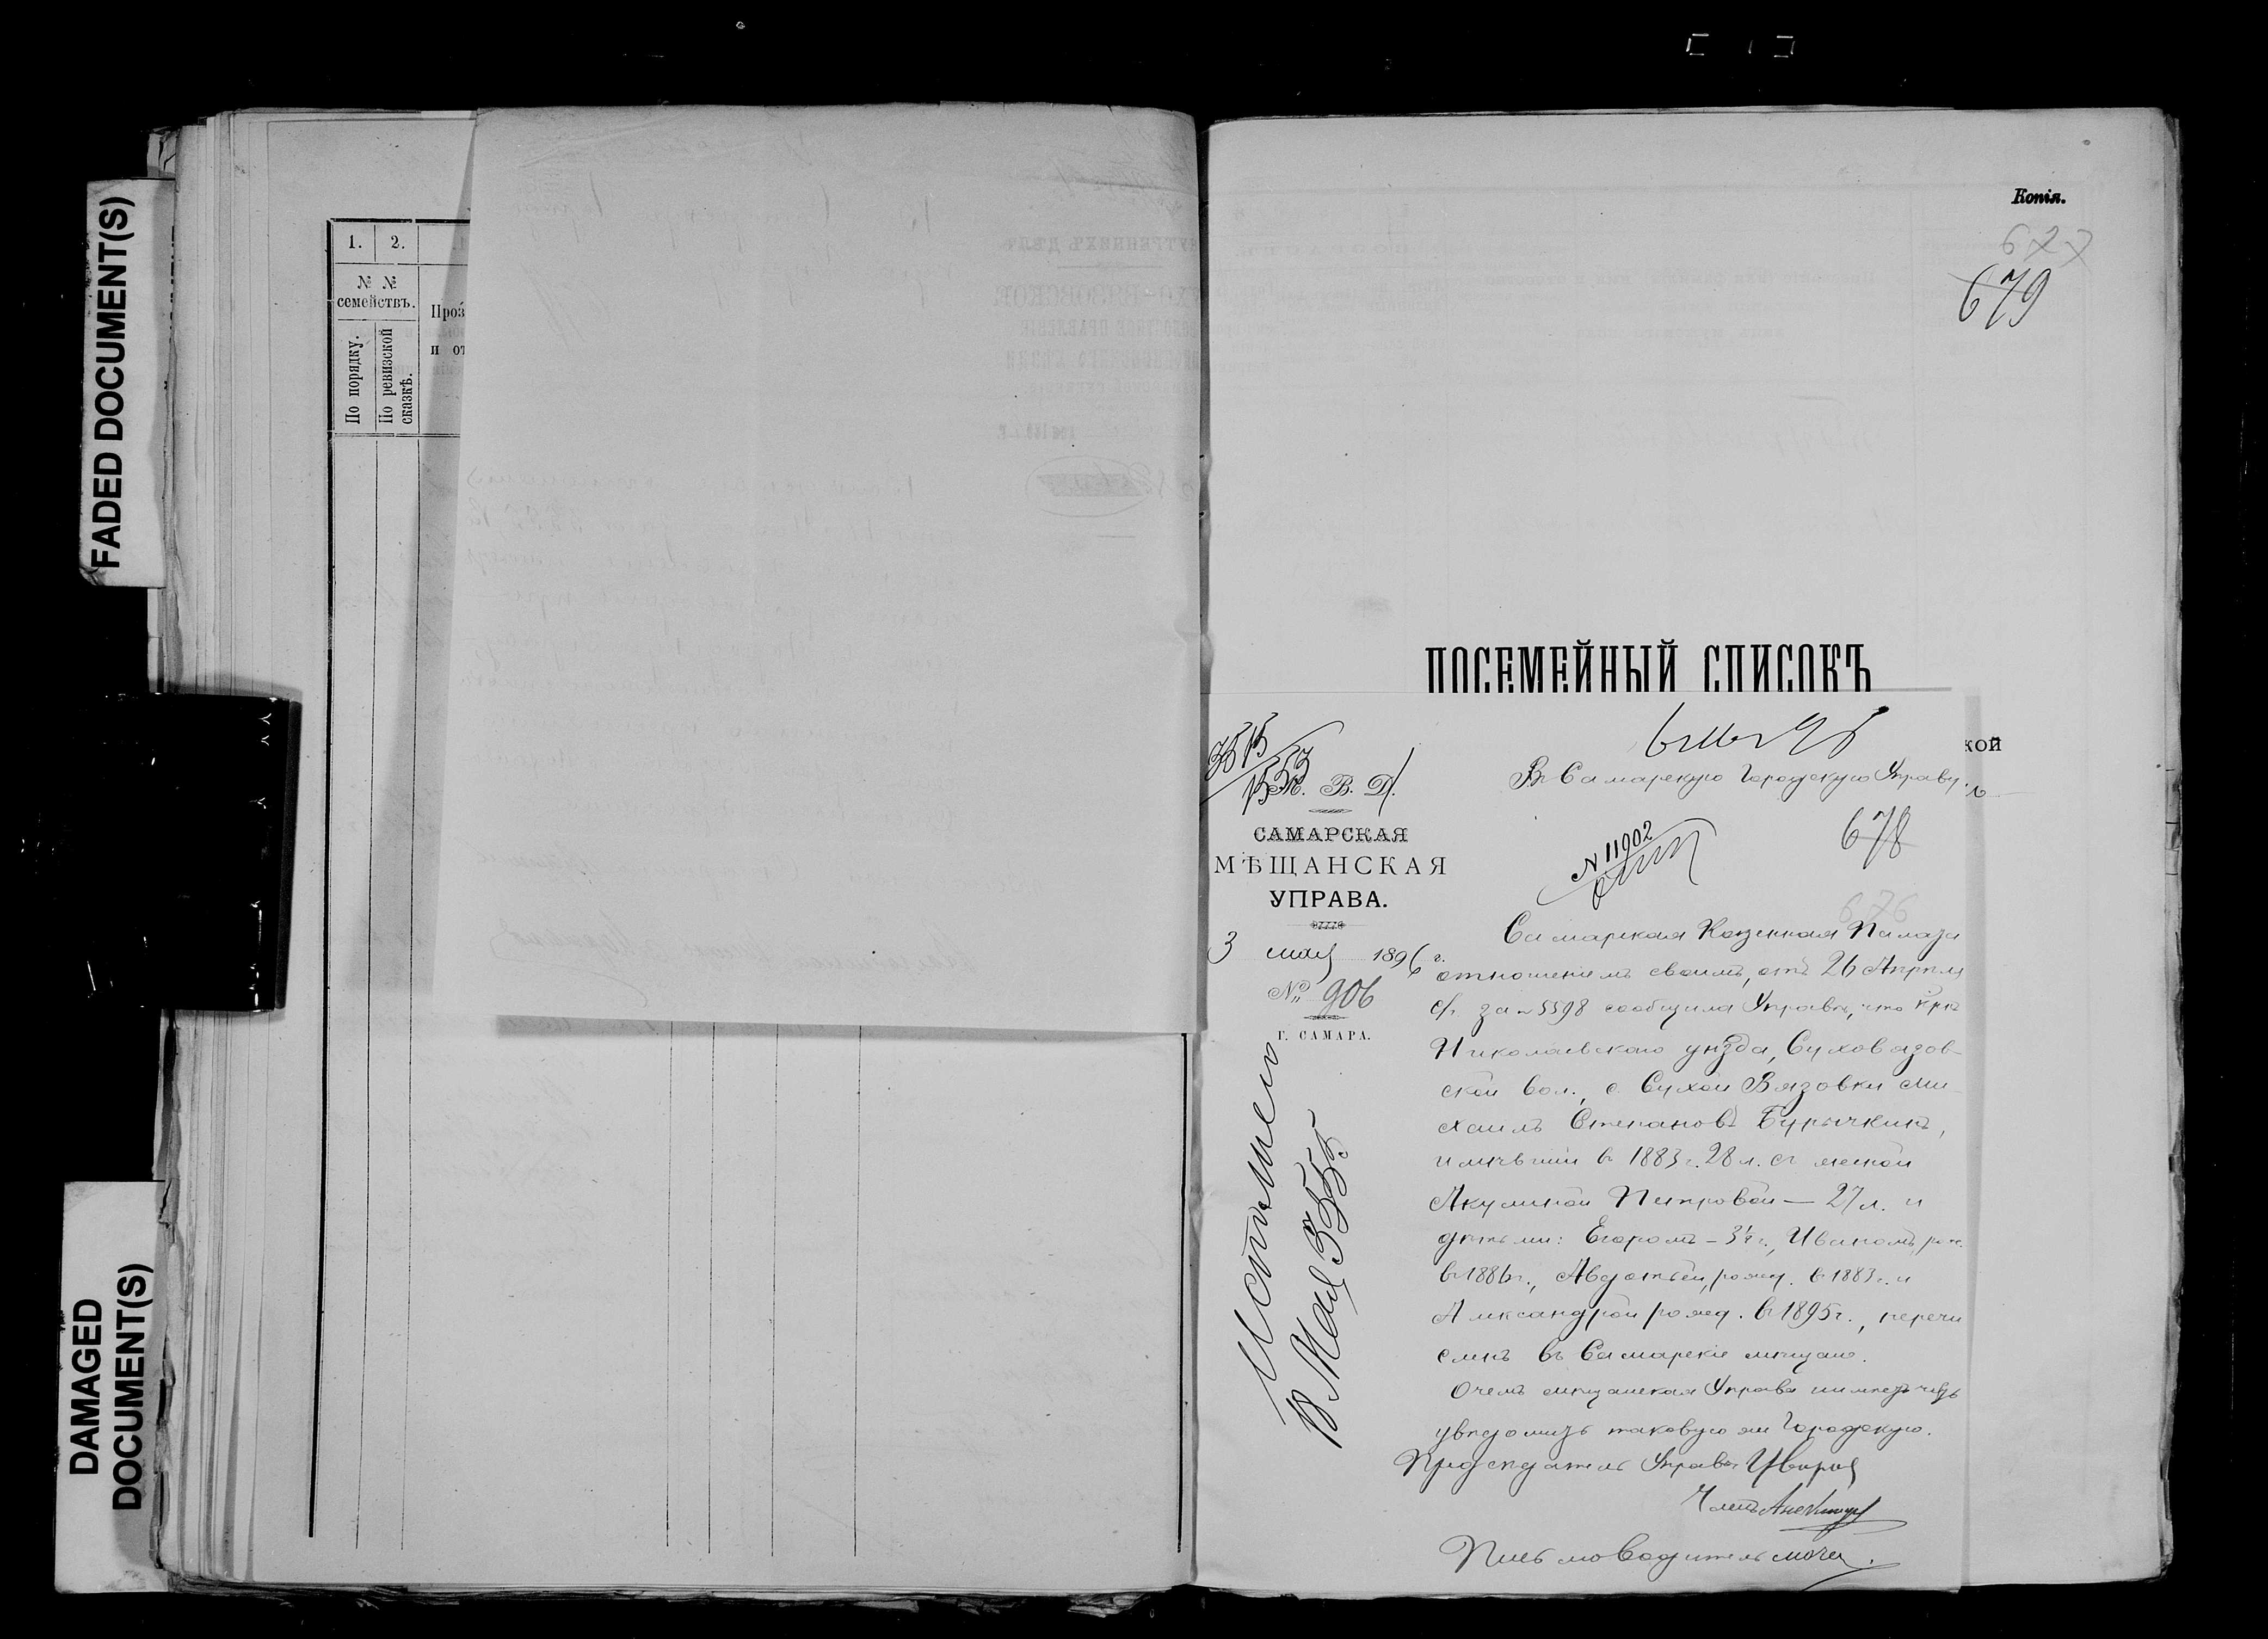 FADED DOCUMENT(S)
DAMAGED
DOCUMENT(S)
1. 2.
№ №
семействъ.
По порядку.
По ревизской
сказкѣ.
Проз
и от
Копія.
677
679
ПОСЕМЕЙНЫЙ СПИСОКЪ
кой
М. В. Д.
САМАРСКАЯ
МѢЩАНСКАЯ
УПРАВА.
3 мая 1896 г.
№ 906
Г. САМАРА.
10 Мая
Въ Самарскую Городскую Управу.
N 11902
678
676
Самарская Казенная Палата
отношеніемъ своимъ, отъ 26 Апрѣля
с/г. за № 5598 сообщила Управѣ, что кр-нъ
Николаевскаго уѣзда, Суховязов-
ской вол., с. Сухой Вязовки Ми-
хаилъ Степановъ Бурычкинъ,
имѣвшій въ 1883 г. 28 л. съ женой
Акулиной Петровой — 27 л. и
дѣтьми: Егоромъ – 3½ г., Иваномъ, рож.
въ 1886 г., Авдотьей, рожд. въ 1883 г. и
Александрой рожд. въ 1895 г., перечи
сленъ въ Самарскіе мѣщане.
О чемъ мѣщанская Управа имѣетъ честь
увѣдомить таковую же Городскую.
Предсѣдатель Управы
Членъ
Письмоводитель